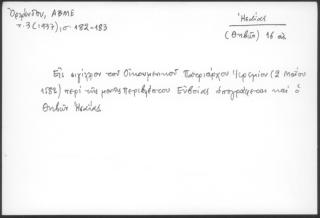 Ὀρλάνδου, ΑΒΜΕ
τ. 3 (1937), σ. 182-183
Ἡσαΐας
(Θηβῶν) 16 αἰ.
Εἰς σιγίλλιον τοῦ Οἰκουμενικοῦ Πατριάρχου Ἱερεμίου (2 Μαΐου
1582) περί τῆς μονῆς Περιβλέπτου Εὐβοίας ὑπογράφεται καί ὁ
Θηβῶν Ἡσαΐας